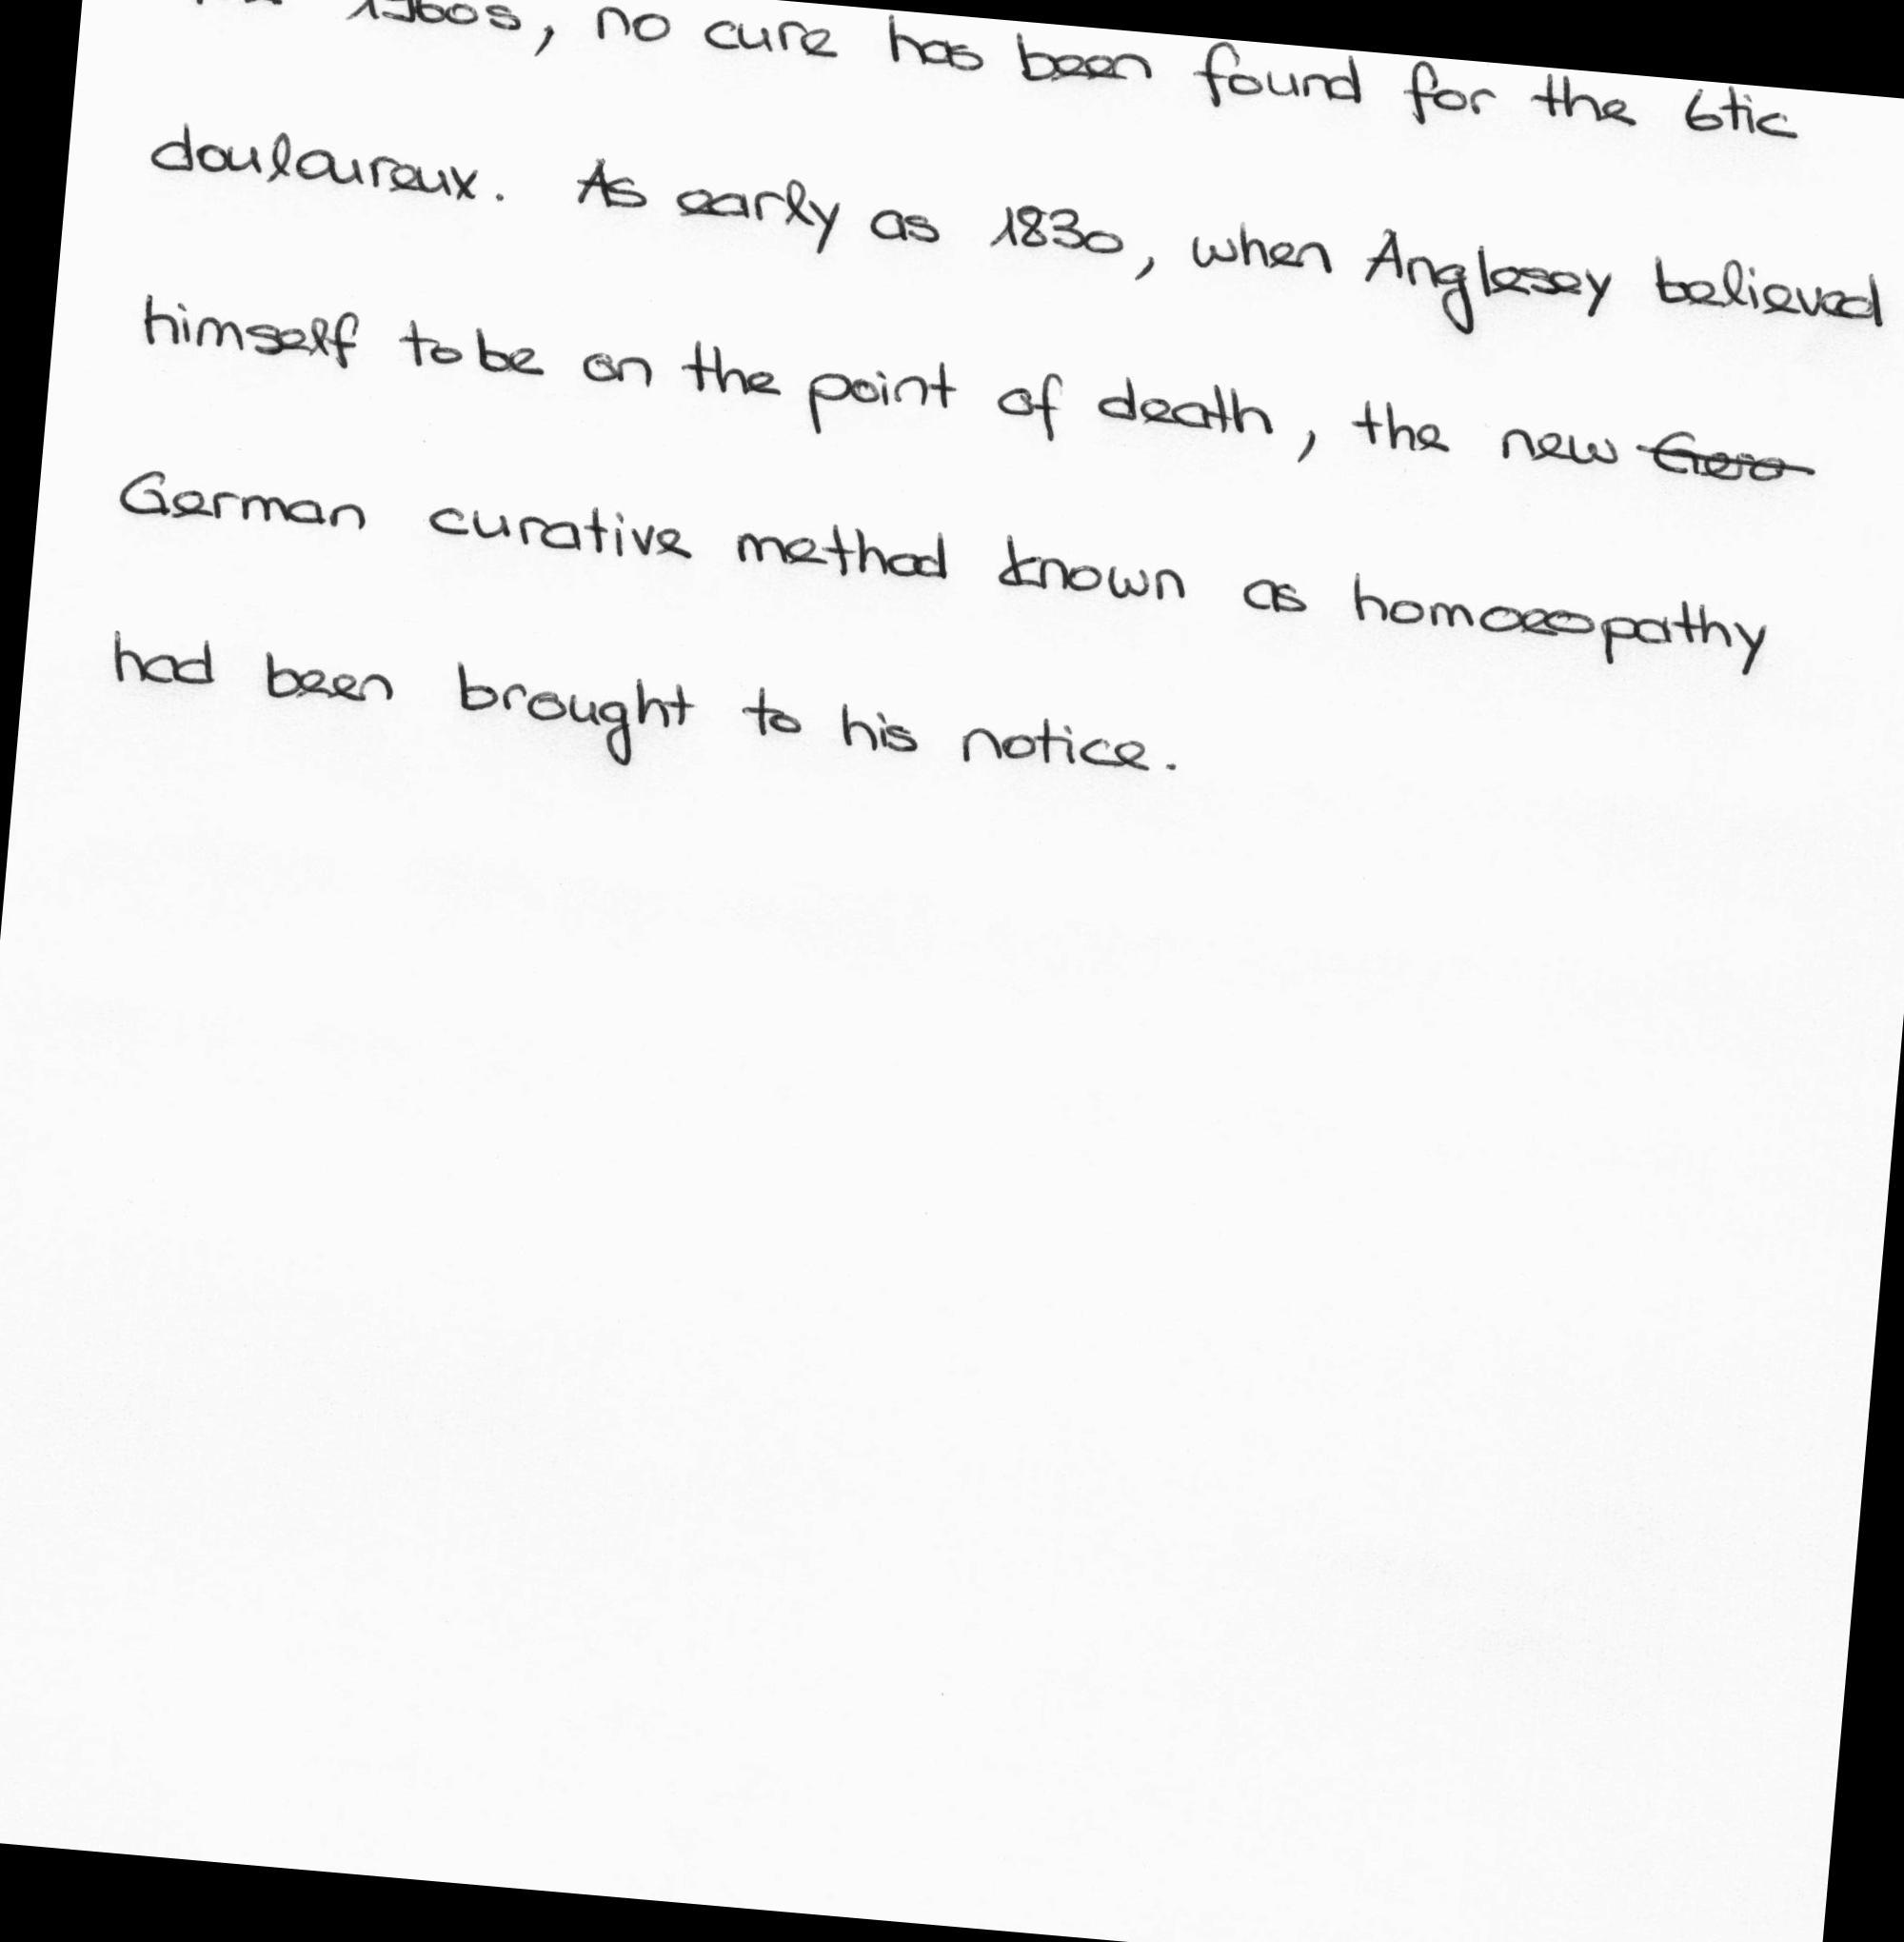 1960s, no cure has been found for the 6tic
douloureux. As early as 1830, when Anglesey believed
himself to be on the point of death, the new
German curative method known as homoeopathy
had been brought to his notice.